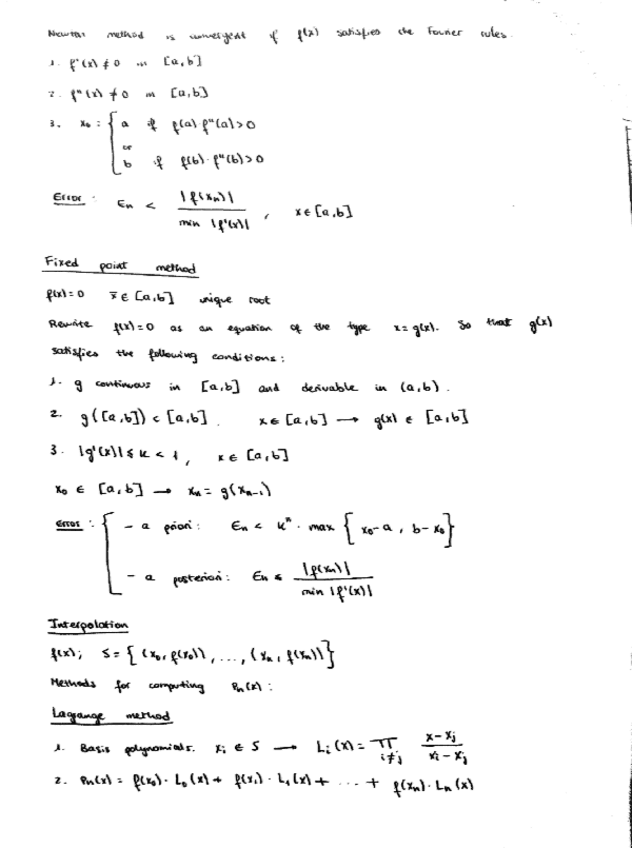 Newton method is convergent if f(x) satisfies the Fourier rules.
1. f'(x) ≠ 0 in [a,b]
2. f''(x) ≠ 0 in [a,b]
3. x₀ : { a if f(a)·f''(a) > 0
or
b if f(b)·f''(b) > 0
Error : Eₙ < |f(xₙ)| / min |f'(x)| , x ∈ [a,b]
Fixed point method
f(x) = 0 x̄ ∈ [a,b] unique root
Rewrite f(x) = 0 as an equation of the type x = g(x). So that g(x)
satisfies the following conditions :
1. g continuous in [a,b] and derivable in (a,b).
2. g([a,b]) ⊂ [a,b]. x ∈ [a,b] → g(x) ∈ [a,b]
3. |g'(x)| ≤ k < 1, x ∈ [a,b]
x₀ ∈ [a,b] → xₙ = g(xₙ₋₁)
Error : { - a priori : Eₙ < kⁿ · max { x₀-a , b-x₀ }
- a posteriori : Eₙ ≤ |f(xₙ)| / min |f'(x)|
Interpolation
f(x); S = { (x₀, f(x₀)), ..., (xₙ, f(xₙ)) }
Methods for computing Pₙ(x) :
Lagrange method
1. Basis polynomials. xᵢ ∈ S → Lᵢ(x) = ∏ i≠j (x-xⱼ) / (xᵢ-xⱼ)
2. Pₙ(x) = f(x₀)·L₀(x) + f(x₁)·L₁(x) + ... + f(xₙ)·Lₙ(x)